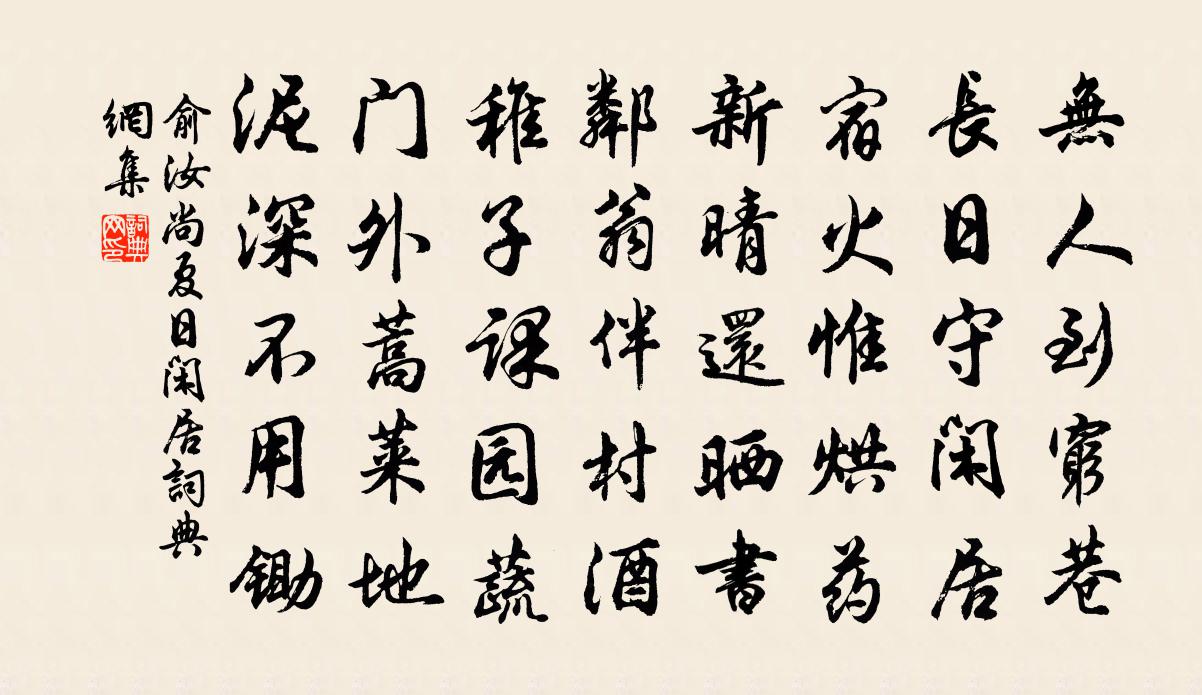 無人到窮巷
長日守閑居
宿火惟烘药
新晴還晒書
鄰翁伴村酒
稚子课园蔬
门外蒿菜地
泥深不用锄
俞汝尚夏日閑居詞典
網集
詞典
网印